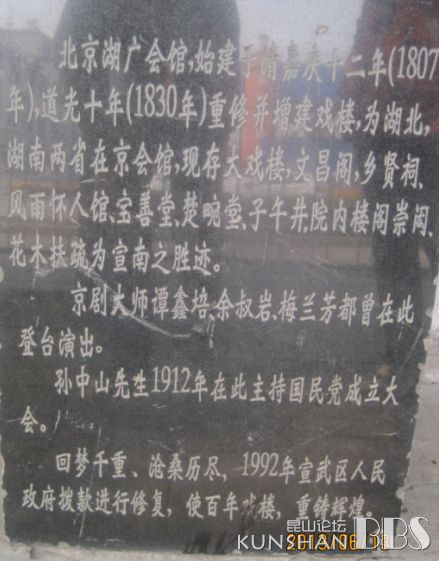 北京湖广会馆,始建于清嘉庆十二年(1807
年),道光十年(1830年)重修并增建戏楼,为湖北,
湖南两省在京会馆,现存大戏楼,文昌阁,乡贤祠、
风雨怀人馆、宝善堂、楚畹堂、子午井,院内楼阁崇闳、
花木扶疏为宣南之胜迹。
京剧大师谭鑫培、余叔岩、梅兰芳都曾在此
登台演出。
孙中山先生1912年在此主持国民党成立大
会。
回梦千重、沧桑历尽,1992年宣武区人民
政府拨款进行修复,使百年戏楼,重铸辉煌。
昆山论坛
KUNSHAN BBS